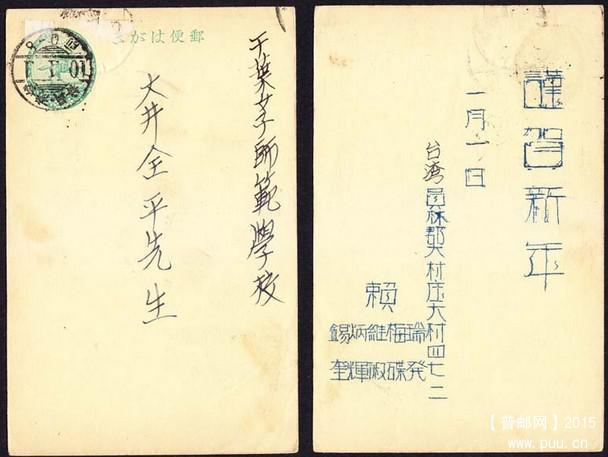 郵便はがき
千葉女子師範學校
大井全平先生
謹賀新年
一月一日
台湾員林郡大村庄大村四七二
賴
錫炳維梅瑞
奎輝淑碟発
【普邮网】2015
www.puu.cn